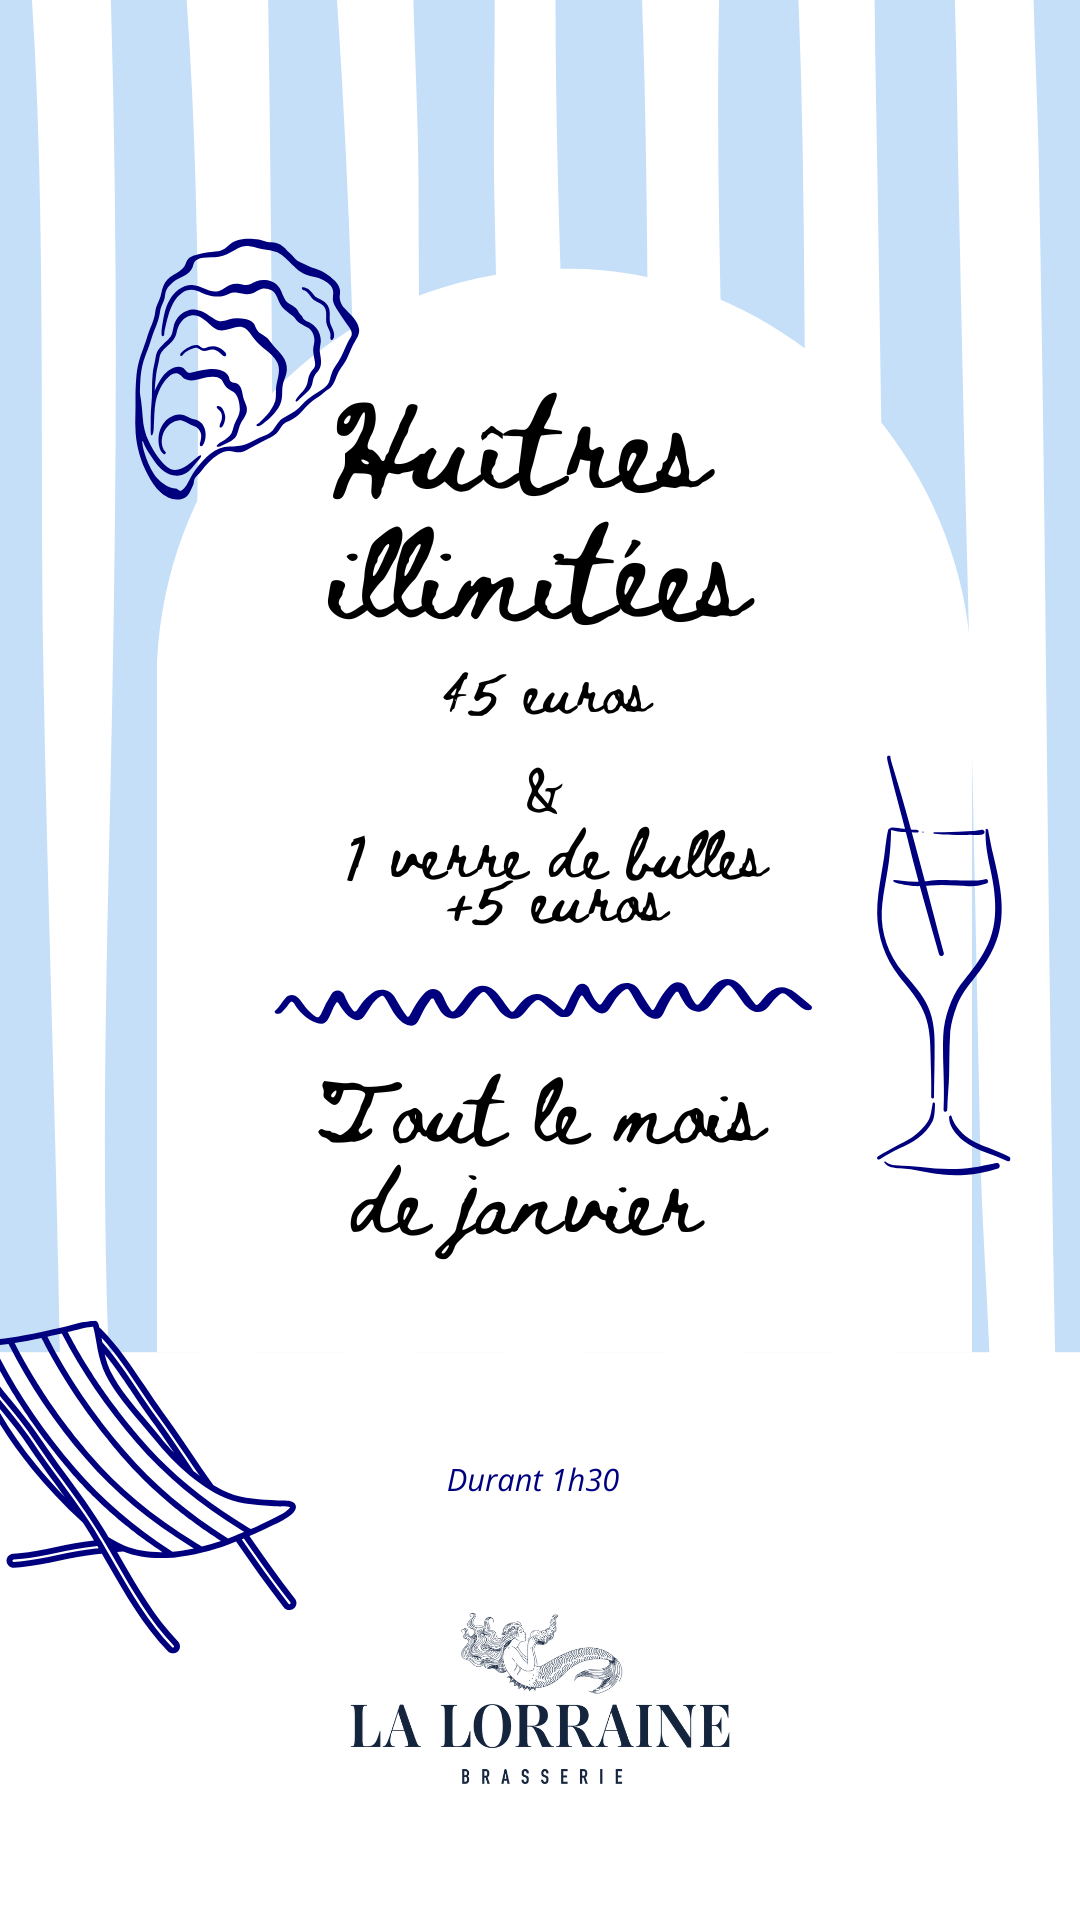 Huîtres
illimitées
45 euros
&
1 verre de bulles
+5 euros
Tout le mois
de janvier
Durant 1h30
LA LORRAINE
BRASSERIE